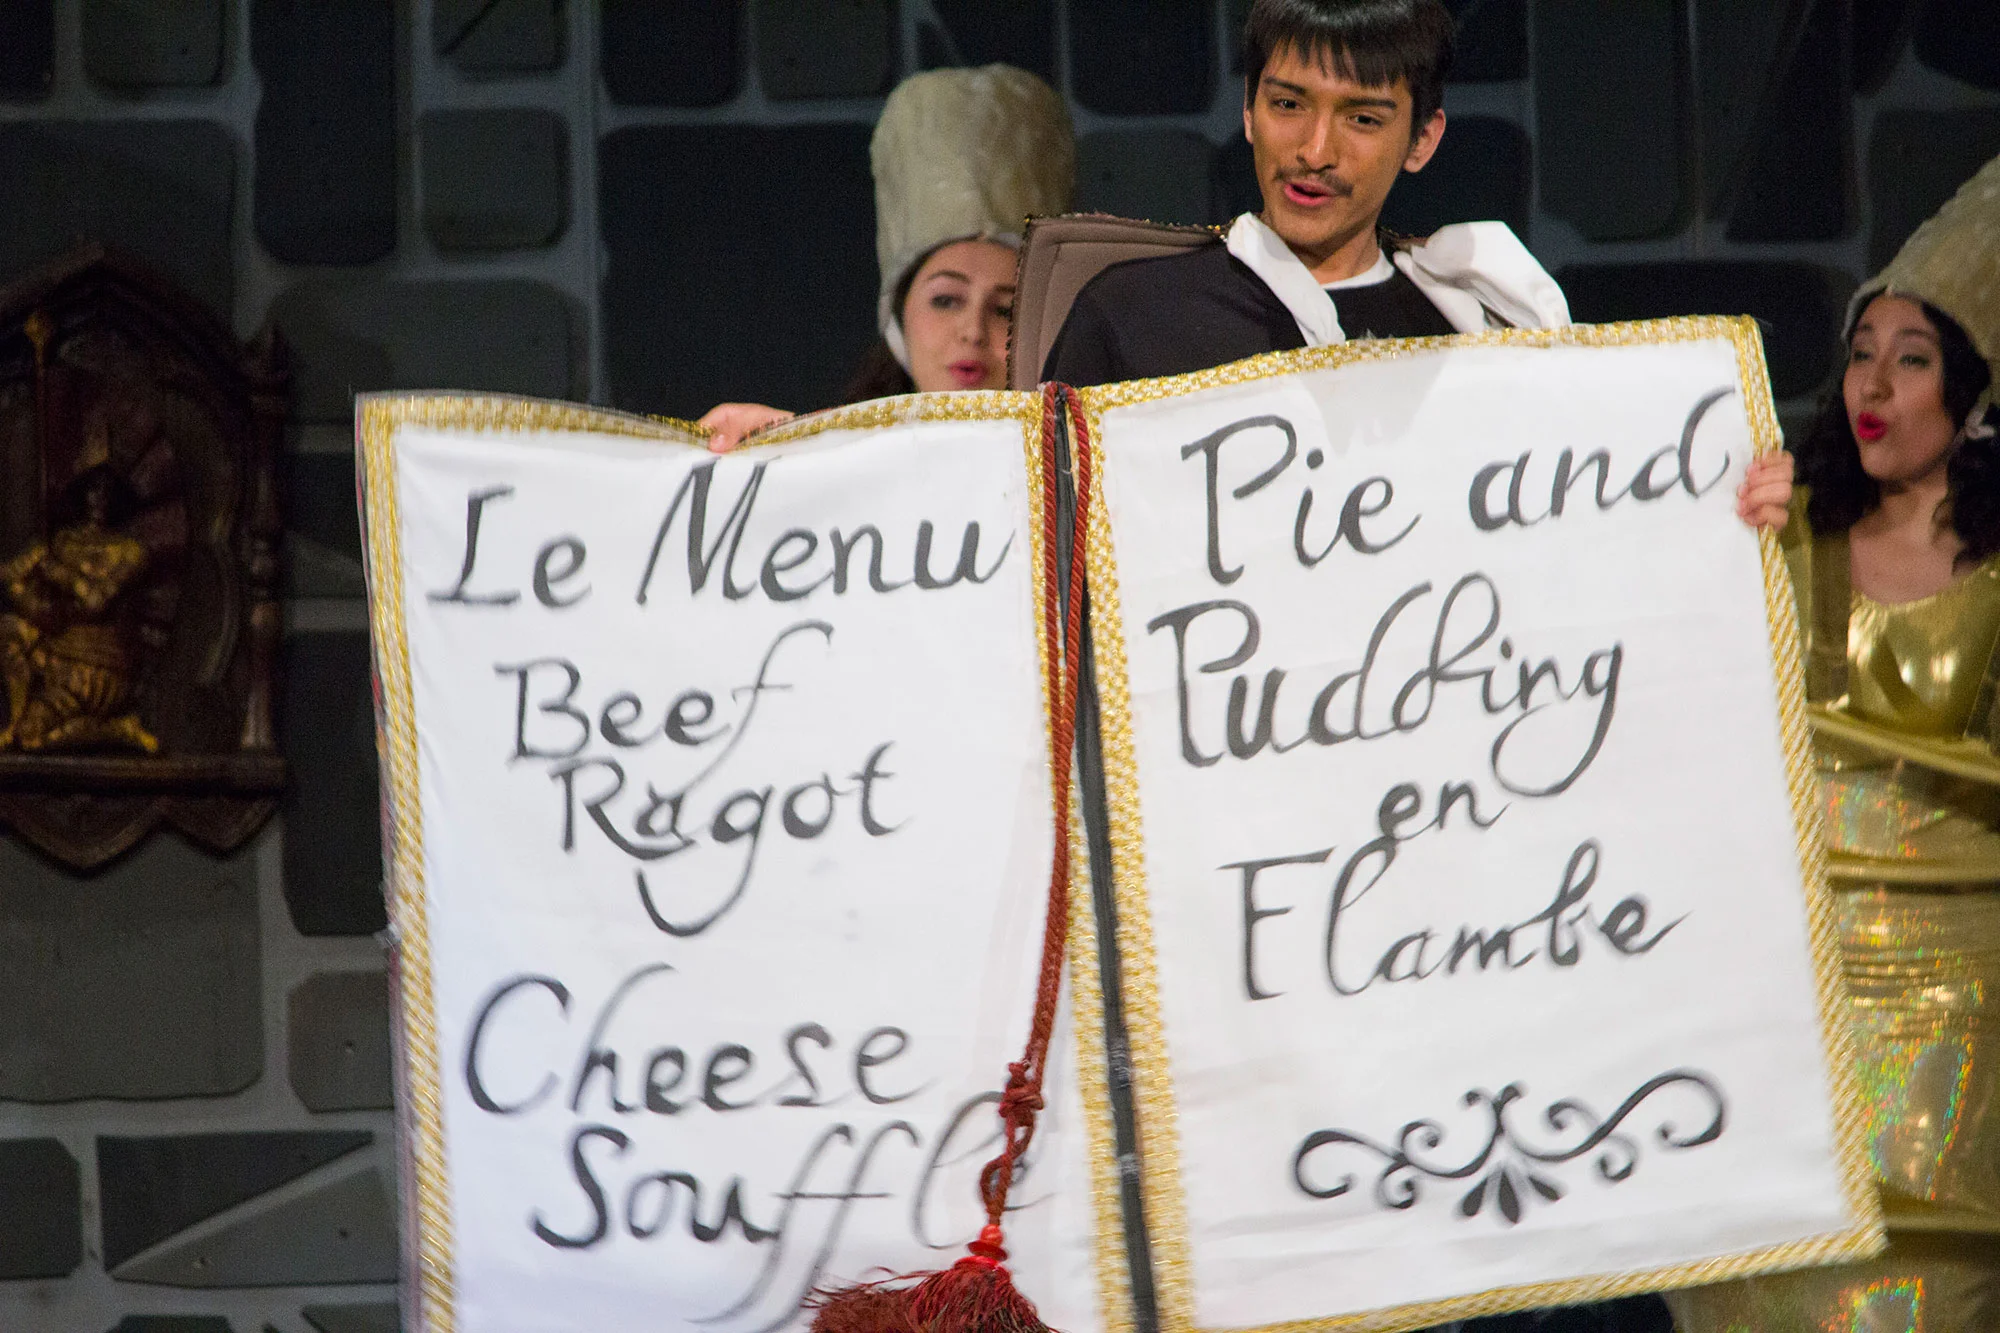 Le Menu
Beef
Ragot
Cheese
Souffle
Pie and
Pudding
en
Flambe